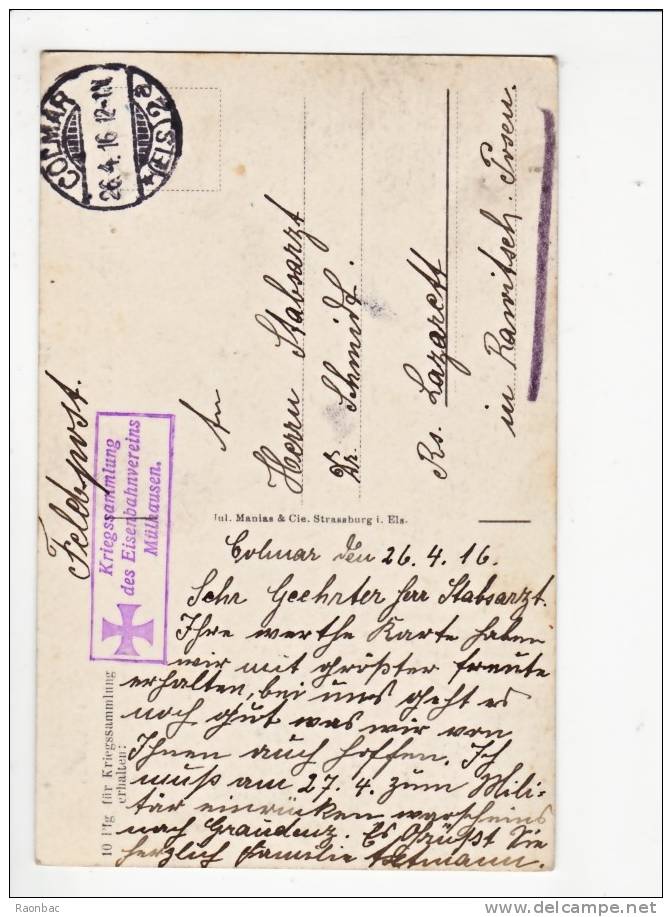 COLMAR
26.4.16 12-1N
*(ELS)2a
Feldpost.
Kriegssammlung
des Eisenbahnvereins
Mülhausen.
An
Herrn Stabsarzt
Dr. Schmidt.
Rs. Lazarett
in Rawitsch. Posen.
Jul. Manias & Cie. Strassburg i. Els.
10 Pfg für Kriegssammlung
erhalten:
Colmar den 26.4.16.
Sehr Geehrter Herr Stabsarzt.
Ihre werthe Karte haben
wir mit größter freute
erhalten, bei uns geht es
noch gut was wir von
Ihnen auch hoffen. Ich
muß am 27.4. zum Mili-
tär einrücken warscheins
nach Graudenz. Es Grüßt Sie
herzlich Familie
Raonbac
delcampe.net